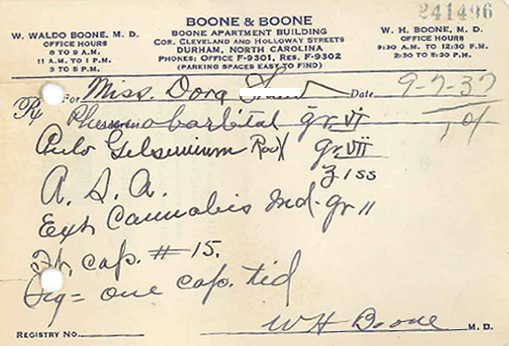 241496
BOONE & BOONE
BOONE APARTMENT BUILDING
COR. CLEVELAND AND HOLLOWAY STREETS
DURHAM, NORTH CAROLINA
PHONES: OFFICE F-9301, RES. F-9302
(PARKING SPACES EASY TO FIND)
W. WALDO BOONE, M. D.
OFFICE HOURS
8 TO 9 A.M.
11 A.M. TO 1 P.M.
3 TO 5 P.M.
W. H. BOONE, M. D.
OFFICE HOURS
9:30 A.M. TO 12:30 P.M.
2:30 TO 5:30 P.M.
For Miss. Dora Date 9-7-37
Rx Phenobarbital gr. VI
Gelsemium gr VII
A. S. A. ʒ iss
Ext Cannabis Ind. gr ii
cap. # 15.
Sig = one cap. tid
W H Boone M. D.
REGISTRY NO.